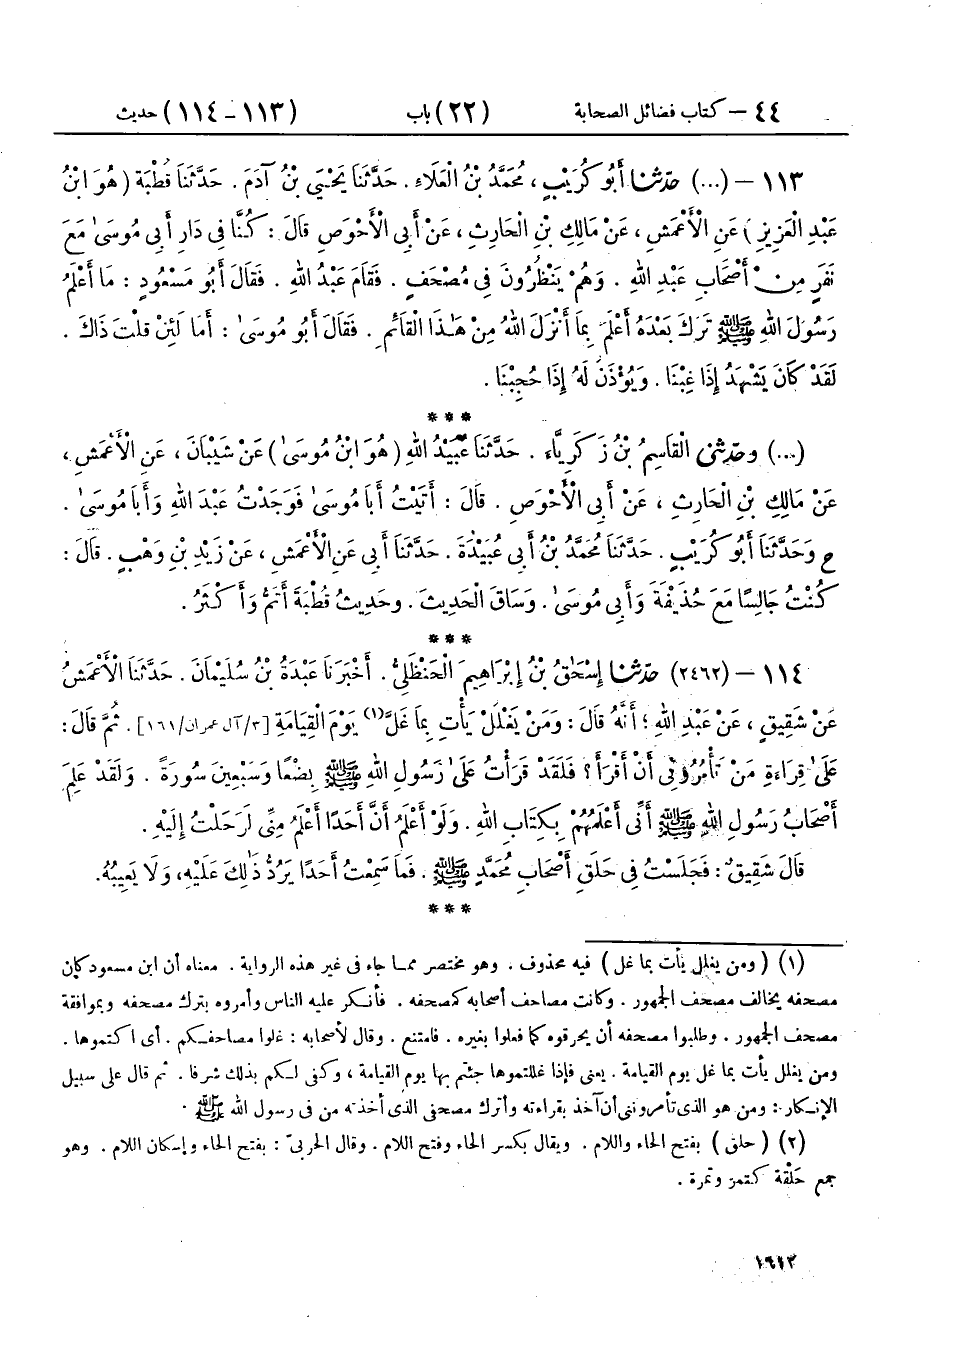 ٤٤ – كتاب فضائل الصحابة (٢٢) باب (١١٣ - ١١٤) حديث
١١٣ – (...) حَدَّثَنَا أَبُو كُرَيْبٍ، مُحَمَّدُ بْنُ الْعَلَاءِ. حَدَّثَنَا يَحْيَىٰ بْنُ آدَمَ. حَدَّثَنَا قُطْبَةُ (هُوَ ابْنُ
عَبْدِ الْعَزِيزِ) عَنِ الْأَعْمَشِ، عَنْ مَالِكِ بْنِ الْحَارِثِ، عَنْ أَبِي الْأَحْوَصِ قَالَ: كُنَّا فِي دَارِ أَبِي مُوسَىٰ مَعَ
نَفَرٍ مِنْ أَصْحَابِ عَبْدِ اللهِ. وَهُمْ يَنْظُرُونَ فِي مُصْحَفٍ. فَقَامَ عَبْدُ اللهِ. فَقَالَ أَبُو مَسْعُودٍ: مَا أَعْلَمُ
رَسُولَ اللهِ ﷺ تَرَكَ بَعْدَهُ أَعْلَمَ بِمَا أَنْزَلَ اللهُ مِنْ هَٰذَا الْقَائِمِ. فَقَالَ أَبُو مُوسَىٰ: أَمَا لَئِنْ قُلْتَ ذَاكَ.
لَقَدْ كَانَ يَشْهَدُ إِذَا غِبْنَا. وَيُؤْذَنُ لَهُ إِذَا حُجِبْنَا.
***
(...) وحَدَّثَنِي الْقَاسِمُ بْنُ زَكَرِيَّاءَ. حَدَّثَنَا عُبَيْدُ اللهِ (هُوَ ابْنُ مُوسَىٰ) عَنْ شَيْبَانَ، عَنِ الْأَعْمَشِ،
عَنْ مَالِكِ بْنِ الْحَارِثِ، عَنْ أَبِي الْأَحْوَصِ. قَالَ: أَتَيْتُ أَبَا مُوسَىٰ فَوَجَدْتُ عَبْدَ اللهِ وَأَبَا مُوسَىٰ.
ح وَحَدَّثَنَا أَبُو كُرَيْبٍ. حَدَّثَنَا مُحَمَّدُ بْنُ أَبِي عُبَيْدَةَ. حَدَّثَنَا أَبِي عَنِ الْأَعْمَشِ، عَنْ زَيْدِ بْنِ وَهْبٍ. قَالَ:
كُنْتُ جَالِسًا مَعَ حُذَيْفَةَ وَأَبِي مُوسَىٰ. وَسَاقَ الْحَدِيثَ. وحَدِيثُ قُطْبَةَ أَتَمُّ وَأَكْثَرُ.
***
١١٤ – (٢٤٦٢) حَدَّثَنَا إِسْحَٰقُ بْنُ إِبْرَاهِيمَ الْحَنْظَلِيُّ. أَخْبَرَنَا عَبْدَةُ بْنُ سُلَيْمَانَ. حَدَّثَنَا الْأَعْمَشُ
عَنْ شَقِيقٍ، عَنْ عَبْدِ اللهِ؛ أَنَّهُ قَالَ: وَمَنْ يَغْلُلْ يَأْتِ بِمَا غَلَّ(١) يَوْمَ الْقِيَامَةِ [٣/آل عمران/١٦١]. ثُمَّ قَالَ:
عَلَىٰ قِرَاءَةِ مَنْ تَأْمُرُونِي أَنْ أَقْرَأَ؟ فَلَقَدْ قَرَأْتُ عَلَىٰ رَسُولِ اللهِ ﷺ بِضْعًا وَسَبْعِينَ سُورَةً. وَلَقَدْ عَلِمَ
أَصْحَابُ رَسُولِ اللهِ ﷺ أَنِّي أَعْلَمُهُمْ بِكِتَابِ اللهِ. وَلَوْ أَعْلَمُ أَنَّ أَحَدًا أَعْلَمُ مِنِّي لَرَحَلْتُ إِلَيْهِ.
قَالَ شَقِيقٌ: فَجَلَسْتُ فِي حَلَقِ أَصْحَابِ مُحَمَّدٍ ﷺ. فَمَا سَمِعْتُ أَحَدًا يَرُدُّ ذَٰلِكَ عَلَيْهِ، وَلَا يَعِيبُهُ.
***
(١) (ومن يغلل يأت بما غل) فيه محذوف. وهو مختصر مما جاء فى غير هذه الرواية. معناه أن ابن مسعود كان
مصحفه يخالف مصحف الجمهور. وكانت مصاحف أصحابه كمصحفه. فأنكر عليه الناس وأمروه بترك مصحفه وبموافقة
مصحف الجمهور. وطلبوا مصحفه أن يحرقوه كما فعلوا بغيره. فامتنع. وقال لأصحابه: غلوا مصاحفكم. أى اكتموها.
ومن يغلل يأت بما غل يوم القيامة. يعنى فإذا غللتموها جئتم بها يوم القيامة، وكفى لكم بذلك شرفا. ثم قال على سبيل
الإنكار: ومن هو الذى تأمروننى أن آخذ بقراءته وأترك مصحفى الذى أخذته من فى رسول الله ﷺ.
(٢) (حلق) بفتح الحاء واللام. ويقال بكسر الحاء وفتح اللام. وقال الحربىّ: بفتح الحاء وإسكان اللام. وهو
جمع حَلْقة كتمر وتمرة.
١٩١٢